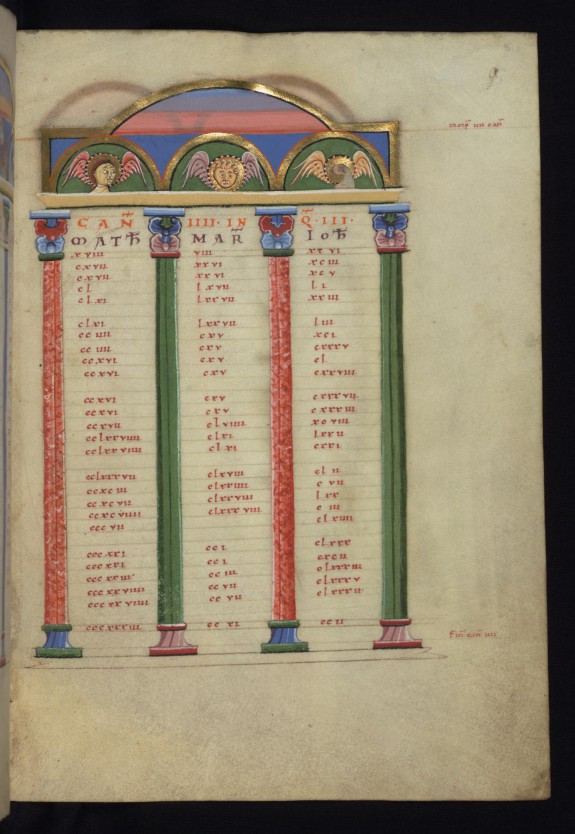 9
incip iiii can
CAÑ IIII·IN Q̄·III·
MATħ MAR̄ IOħ
xviii viii xxvi
cxvii xxvi xciii
cxvii xxvi xcv
cl lxvii li
clxi lxxvii xxiii
clxi lxxvii liii
cciiii cxv xci
cciiii cxv cxxxv
ccxvi cxv
ccxvi cxv cxxviii
ccxvi cxv cxxxvii
ccxvi cxv cxxxiii
ccxvii clviiii xcviii
cclxxviiii clxi lxxii
cclxxviiii clxi cxxi
cclxxxvii clxviii clii
ccxciii clxxiiii cvii
ccxcvii clxxviii lxx
ccxcviiii clxxxviii ciii
cccvii clxiiii
cccxxi cci clxxx
cccxxi cci cxcii
cccxxiii cciii clxxxiii
cccxxviiii ccvii clxxxv
cccxxviiii ccvii clxxxvii
cccxxxiii ccxi cciii
Fin can iiii